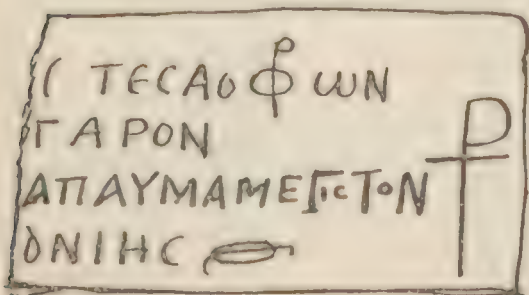 ( ΤΕCΑΟΦωΝ
ΓΑΡΟΝ
ΑΠΑΥΜΑΜΕΓΙCΤΟΝ
ΟΝΙΗC
⳨